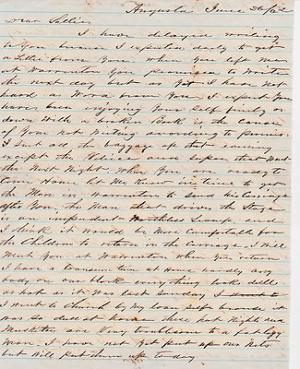 Augusta June 26/62
Dear Sallie
I have delayed writing
to you because I expected daily to get
a letter from you. When you left me
at Warrenton you promised to write
the next day but as yet I have not
heard a word from you. I expect you
have been enjoying your self finely &
down with a broken Back is the cause
of your not writing according to promise.
I sent all the baggage up that evening
except the Valices and supose that went
the next Night. When you are ready to
Come Home let me Know in time to get
the Man in Warrenton to send his Carriage
after you. the Man that drives the Stage
is an impudent worthless Scamp and
I think it would be more Comfortable for
the Children to return in the Carriage. I will
meet you at Warrenton when you return
I have a lonesome time at Home hardly any
body on our block every thing looks dull
as it was last Sunday
I went to Church by my lone self
was so dull at home these hot Nights and
Muskitoes are Very troublesome to a fat
man. I have not yet put up our Nets
but will put them up to day